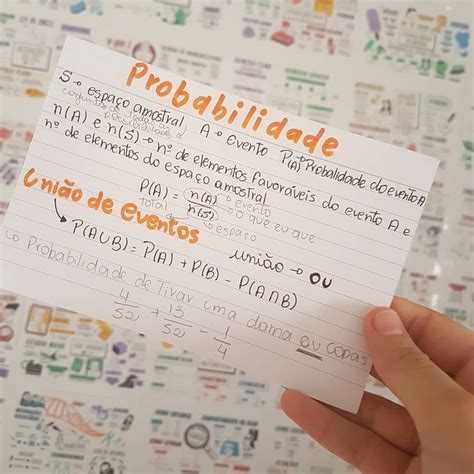 Probabilidade
S → espaço amostral A → evento P(A) → Probalidade do evento A
n(A) e n(S) → nº de elementos favoráveis do evento A e
nº de elementos do espaço amostral
P(A) = n(A) → evento → o que eu quero
n(S)
total → espaço
União de Eventos
união → ou
P(A∪B) = P(A) + P(B) - P(A∩B)
Probabilidade de Tirar uma dama ou copas
4/52 + 13/52 - 1/4